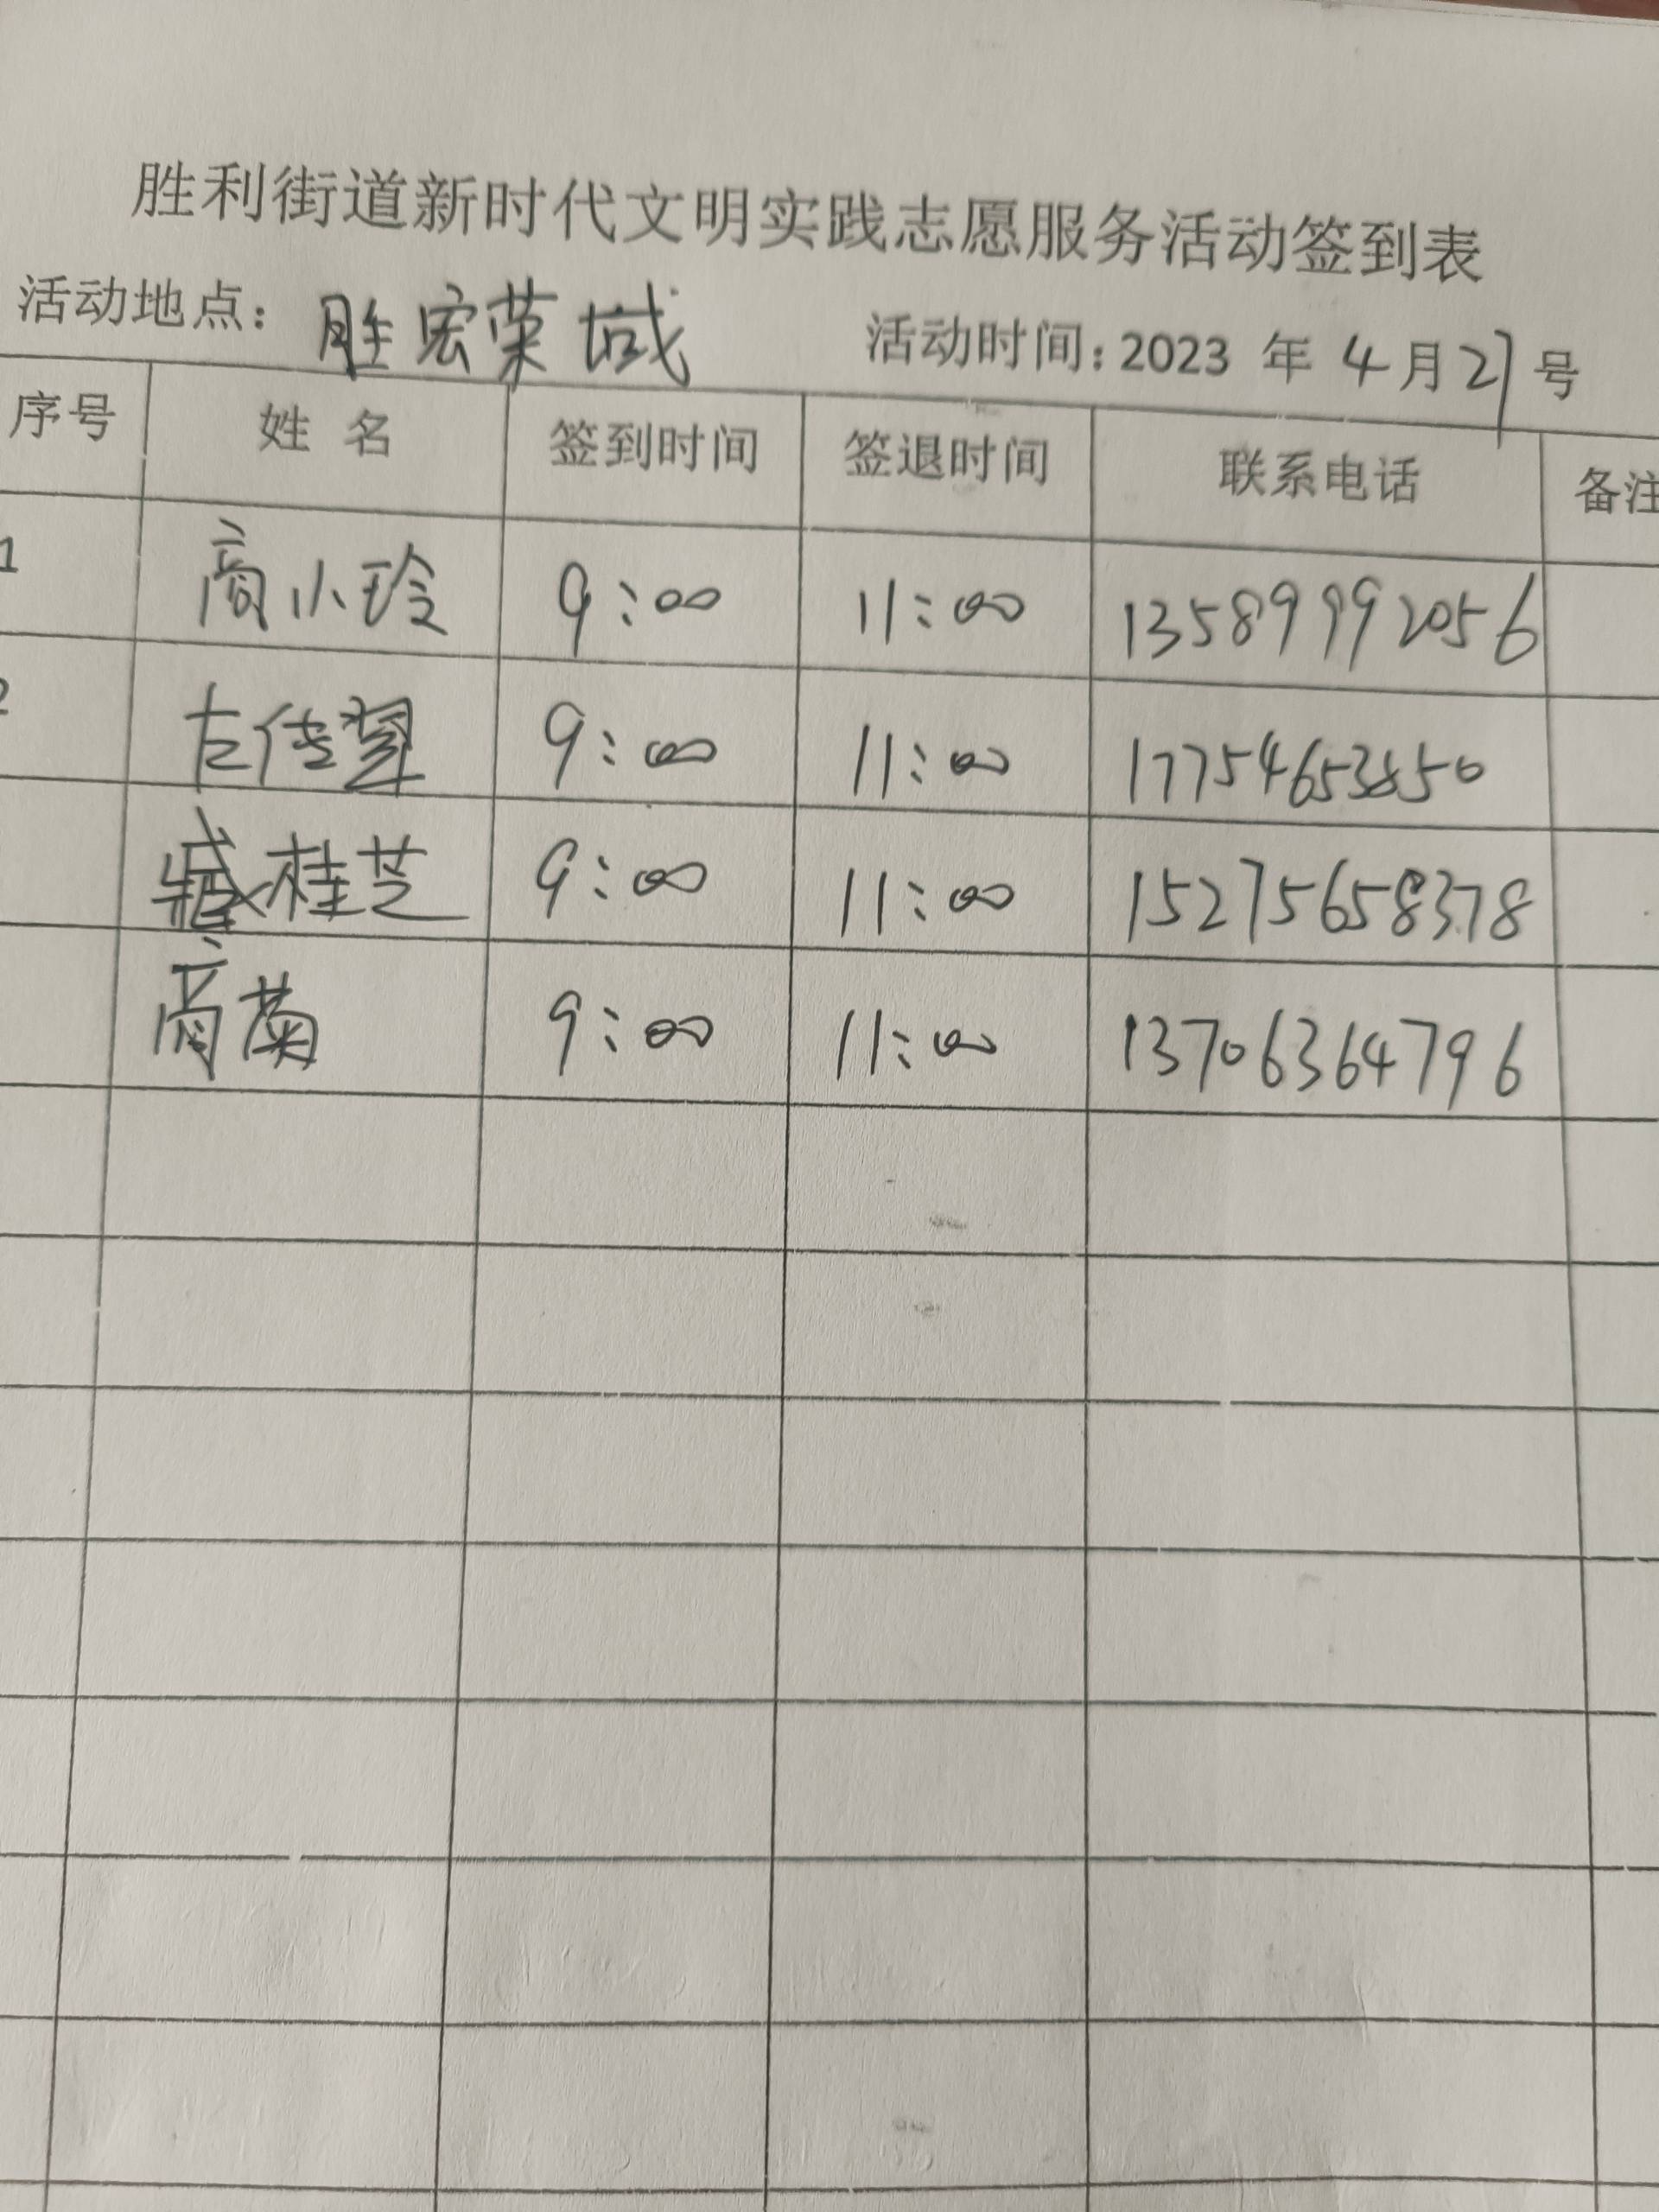 胜利街道新时代文明实践志愿服务活动签到表
活动地点：胜宏荣域 活动时间：2023 年 4 月 27 号
序号 姓 名 签到时间 签退时间 联系电话 备注
1 商小玲 9:00 11:00 13589992056
2 左佳 9:00 11:00 17754653850
臧桂芝 9:00 11:00 15275658378
商菊 9:00 11:00 13706364796